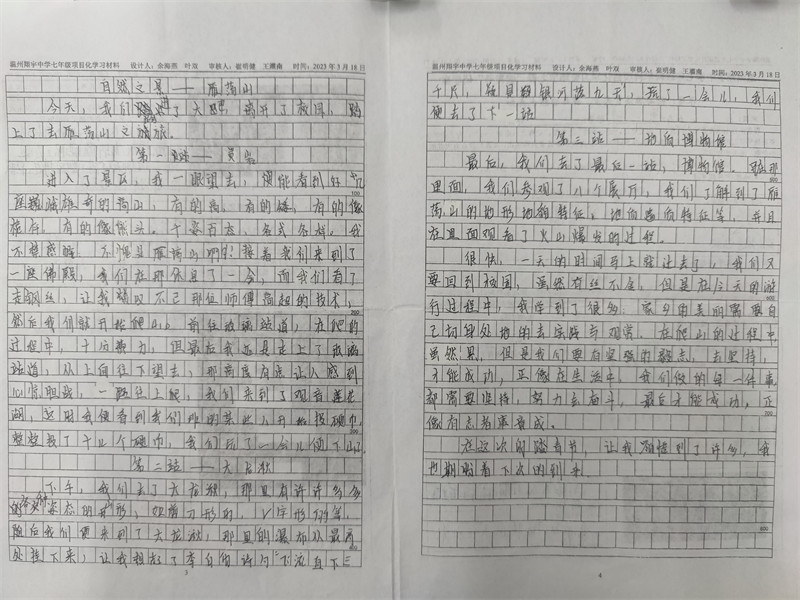 温州翔宇中学七年级项目化学习材料 设计人：余海燕 叶双 审核人：崔明健 王臻南 时间：2023年3月18日
自然之景——雁荡山
今天，我们了大巴，离开了校园，踏
上了去雁荡山之旅。
第一站——灵岩
进入了景区，我一眼望去，便能看到好几
座巍峨雄奇的高山，有的高，有的矮，有的像
柱子，有的像然头。千姿百态，各式各样。我
不禁感叹，不愧是雁荡山啊！接着我们来到了
一座佛殿，我们在那休息了一会，而我们看了
走钢丝，让我惊叹不已那位师傅高超的技术，
然后我们就开始爬山前往玻璃站道，在爬的
过程中，十分费力，但最后我还是走上了玻璃
站道，从上面往下望去，那高度有点让人感到
心惊胆战，一路往上爬，我们来到了观音莲花
湖，这时我便看到我们班的某些人开始投硬币，
整整投了十几个硬币，我们玩了一会儿便下山了。
第二站——大龙湫
下午，我们去了大龙湫，那里有许许多多
的各种姿态的形，如剪刀形的，V字形的等，
随后我们便来到了大龙湫，那里的瀑布从最高
处挂下来，让我想起了李白的诗句“飞流直下三
3
温州翔宇中学七年级项目化学习材料 设计人：余海燕 叶双 审核人：崔明健 王臻南 时间：2023年3月18日
千尺，疑是银河落九天，玩了一会儿，我们
便去了下一站
第三站——地质博物馆
最后，我们去了最后一站，博物馆。在那
里面，我们参观了八个展厅，我们了解到了雁
荡山的地形地貌特征，地质地貌特征等，并且
在里面观看了火山爆发的过程。
很快，一天的时间马上就过去了，我们又
要回到校园，虽然有些不舍，但是在今天的游
行过程中，我学到了很多。家乡的美丽需要自
己切身处地的去实践与观赏。在爬山的过程中
虽然累，但是我们要有坚强的毅志，去坚持，
才能成功，正像在生活中，我们做的每一件事
都需要坚持，努力去奋斗，最后才能成功，正
像有志者事竟成。
在这次的踏春节，让我领悟到了许多，我
也期盼着下次的到来
4